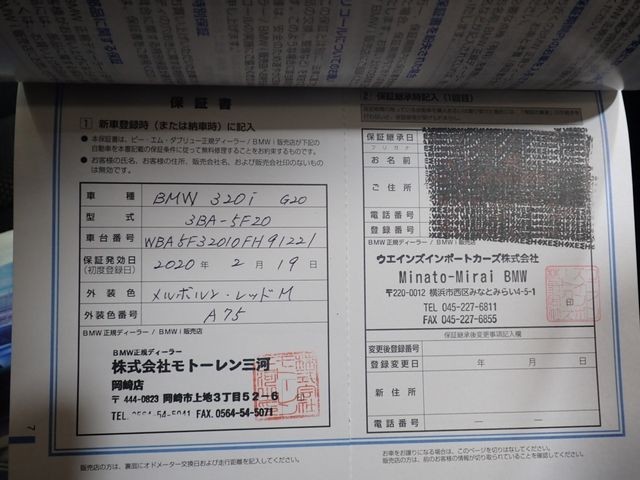 保証書
1 新車登録時（または納車時）に記入
● 本保証書は、ビー・エム・ダブリュー正規ディーラー / BMW i 販売店が下記の
自動車を本書記載の保証条件に従って無料修理することをお約束するものです。
● お客様の氏名、お客様の住所、販売会社名、および販売会社印のないもの
は無効です。
車種 BMW 320i G20
型式 3BA-5F20
車台番号 WBA5F32010FH91221
保証発効日 2020 年 2 月 19 日
(初度登録日)
外装色 メルボルン・レッドM
外装色番号 A75
BMW正規ディーラー / BMW i 販売店
BMW正規ディーラー
株式会社モトーレン三河
岡崎店
〒444-0823 岡崎市上地3丁目52-6
TEL.0564-54-5041 FAX.0564-54-5071
販売店の方は、裏面にオドメーター交換日および走行距離を記入してください。
7
2 保証継承時記入（1回目）
保証継承日
フリガナ
お名前
ご住所
電話番号
登録番号
BMW正規ディーラー / BMW i 販売店
ウエインズインポートカーズ株式会社
Minato-Mirai BMW
〒220-0012 横浜市西区みなとみらい4-5-1
TEL 045-227-6811
FAX 045-227-6855
印
保証継承後変更事項記入欄
変更後登録番号
登録変更日 年 月 日
新住所
電話番号 － －
お車をお譲りになる場合は、このページを切りはなしてください。
販売店の方は、前のお客様の情報が切り取られていることを確認してください。